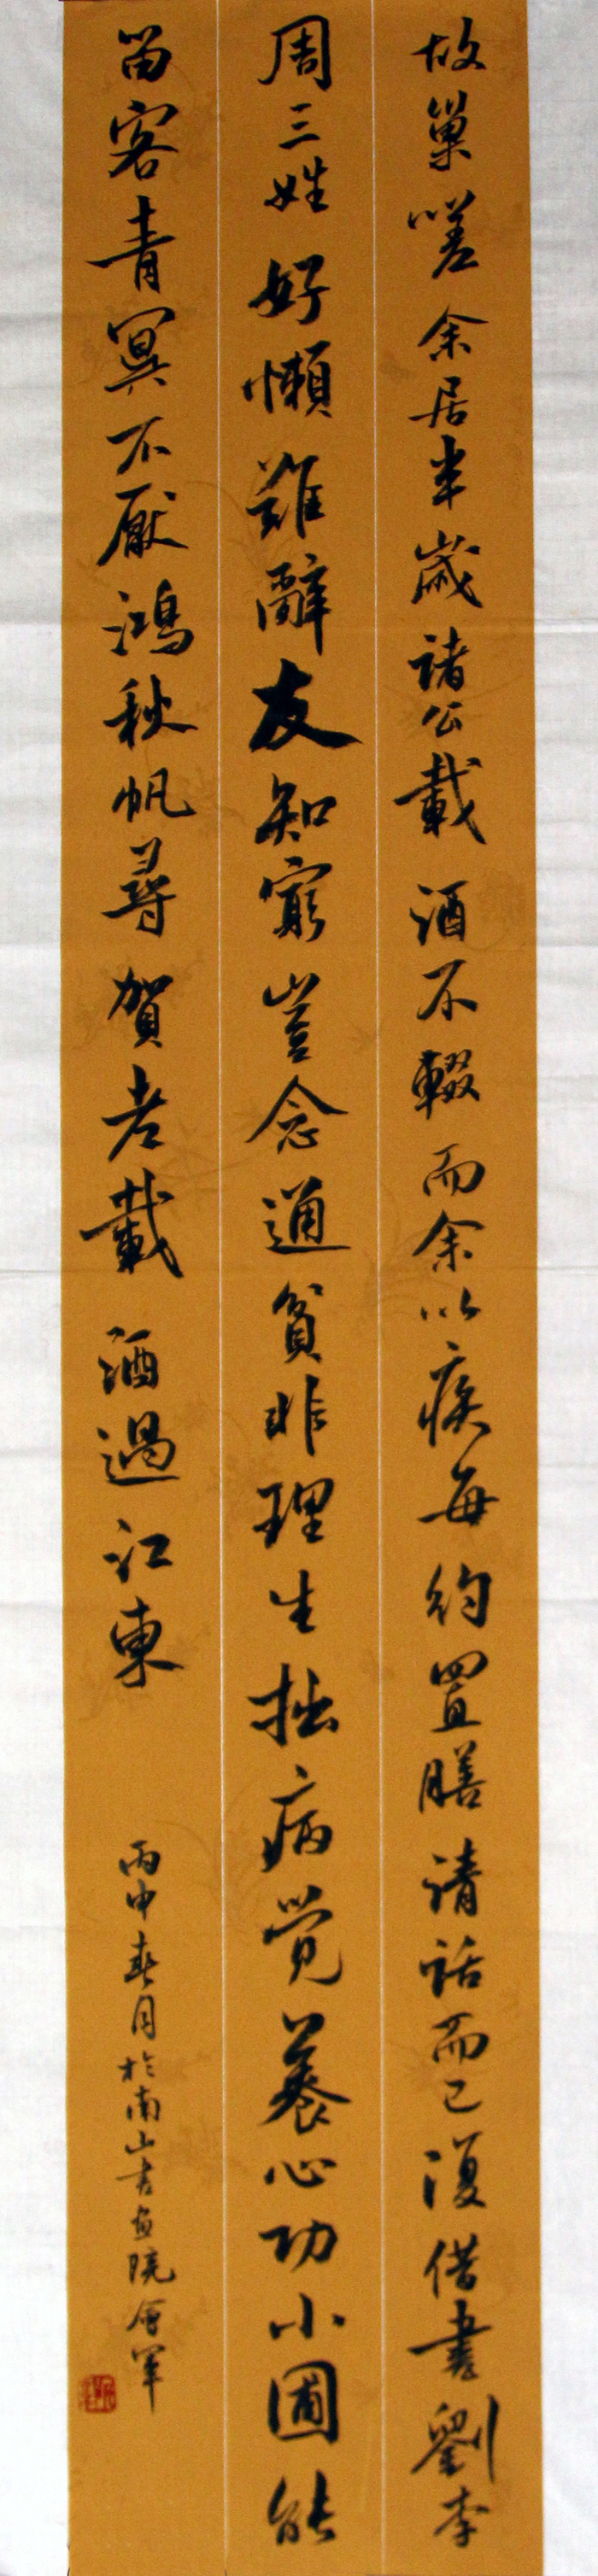 故巢嗟余居半歲諸公載酒不輟而余以疾每約置膳請話而已復借書劉李
周三姓好懶難辭友知窮豈念通貧非理生拙病覺養心功小圃能
留客青冥不厭鴻秋帆尋賀老載酒過江東
丙申春月於南山書畫院會軍